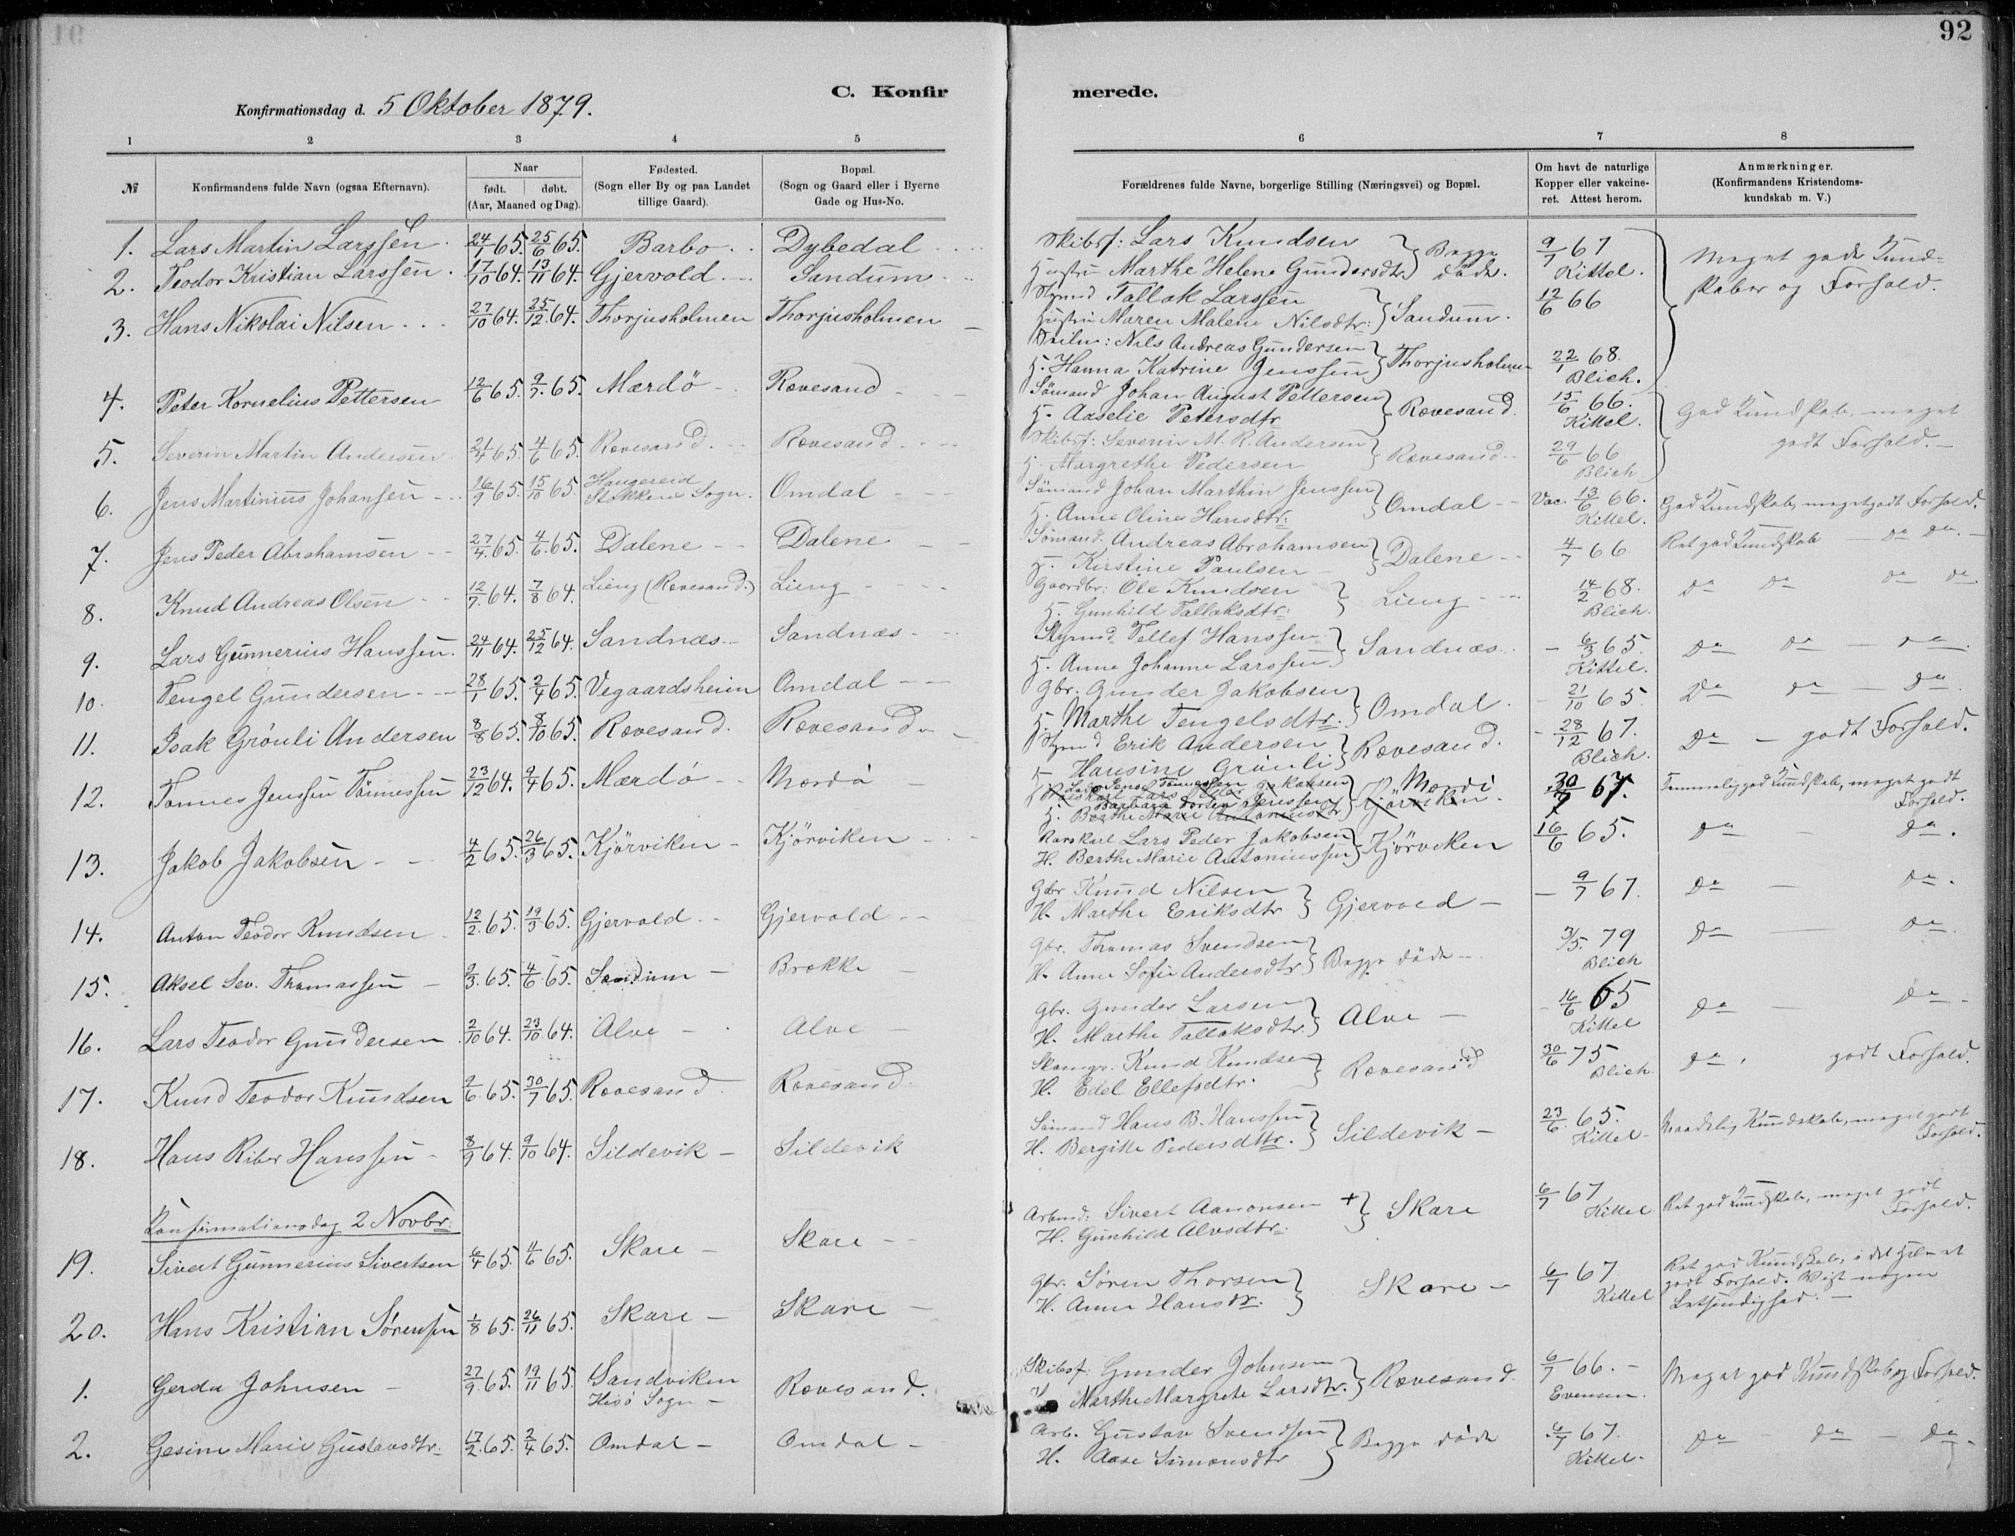 92
Konfirmationsdag d. 5 Oktober 1879.
C. Konfirmerede.
1 2 3 4 5 6 7 8
№
Konfirmandens fulde Navn (ogsaa Efternavn).
Naar
født. døbt.
(Aar, Maaned og Dag).
Fødested.
(Sogn eller By og paa Landet
tillige Gaard).
Bopæl.
(Sogn og Gaard eller i Byerne
Gade og Hus-No.
Forældrenes fulde Navne, borgerlige Stilling (Næringsvei) og Bopæl.
Om havt de naturlige
Kopper eller vakcine-
ret. Attest herom.
Anmærkninger.
(Konfirmandens Kristendoms-
kundskab m. V.)
1. Lars Martin Larssen 24/1 65. 25/6 65. Barbo Dybedal
Skibsf: Lars Knudsen
Hustru Marthe Helene Gundersdtr } Begge døde. 9/7 67 Kittel. Meget gode Kund-
skaber og Forhold.
2. Teodor Kristian Larssen 17/10 64. 13/11 64. Gjervold Sandum
Styrmd Tallak Larssen
Hustru Maren Malene Nilsdtr: } Sandum. 12/6 66
3. Hans Nikolai Nilsen 27/10 64. 25/12 64. Thorjusholmen Thorjusholmen
Nils Andreas Gundersen
H. Hanna Katrine Jenssen } Thorjusholmen 22/1 68. Blich.
4. Peter Kornelius Pettersen 12/6 65. 9/7 65. Mærdö Rævesand
Sömand Johan August Pettersen
H. Aaselie Petersdtr } Rævesand. 15/6 66. Kittel. God Kundskab, meget
godt Forhold.
5. Severin Martin Andersen 2/4 65. 4/6 65. Rævesand. Rævesand
Skibsf: Severin M. R. Andersen
H. Margrethe Pedersen } Rævesand 29/6 66 Blich
6. Jens Martinius Johansen 16/9 65. 15/10 65. Haugereid
Stokken Sogn. Omdal
Sömand Johan Marthin Jenssen
H. Anne Oline Hansdtr: } Omdal Vac. 13/6 66. Kittel. God Kundskab, meget godt Forhold.
7. Jens Peder Abrahamsen 27/4 65. 4/6 65. Dalene Dalene
Sömand. Andreas Abrahamsen
H. Kirstine Paulsen } Dalene 4/7 66 Ret god Kundskab do do
8. Knud Andreas Olsen 12/7 64. 7/8 64. Lieng (Rævesand.) Lieng
Gaardbr: Ole Knudsen
H. Gunhild Tallaksdtr: } Lieng 14/2 68. Blich. do do do do
9. Lars Gunnerius Hanssen. 24/11 64. 25/12 64. Sandnæs Sandnæs
Styrmd Tellef Hanssen
H. Anne Johanne Larssen } Sandnæs 6/3 65. Kittel. do do do
10. Tengel Gundersen 28/1 65. 2/4 65. Vegaardsheien Omdal
Gbr. Gunder Jakobsen
H. Marthe Tengelsdtr. } Omdal 21/10 65. do do do
11. Isak Grönli Andersen 8/8 65. 8/10 65. Rævesand. Rævesand
Styrmd Erik Andersen
H. Hansine Grönli } Rævesand. 28/12 67. Blich. do godt Forhold.
12. Tønnes Jenssen Tönnessen 23/12 64. 2/4 65. Mærdö Mærdö
Jens Tønnessen
Barbara Jenssen } Mærdö 30/7 67. Temmelig god Kundskab, meget godt
Forhold.
13. Jakob Jakobsen 4/2 65. 26/3 65. Kjörviken Kjörviken
Lars Peder Jakobsen
H. Berthe Marie Antoniussen } Kjörviken 16/6 65. do do.
14. Anton Teodor Knudsen 12/2 65. 19/3 65. Gjervold Gjervold
Gbr Knud Nilsen
H. Marthe Eriksdtr } Gjervold 9/7 67. do do.
15. Aksel Sev. Thomassen 2/3. 65. 4/6 65. Sandum Brække
Gbr. Thomas Svendsen
H. Anne Sofie Andersdtr } Begge döde 3/5. 79 Blich do do.
16. Lars Teodor Gundersen 2/10 64. 23/10 64. Alve Alve
Gbr. Gunder Larsen
H. Marthe Tallaksdtr. } Alve 16/6 65 Kittel do do
17. Knud Teodor Knudsen 2/6. 65. 30/7 65. Rævesand Rævesand.
Knud Knudsen
H. Edel Ellefsdtr. } Rævesand 30/6 75 Blich. do. godt Forhold.
18. Hans Riber Hanssen 8/9 64. 9/10 64. Sildevik Sildevik
Sömand Hans B. Hanssen
H. Bergitte Pedersdtr. } Sildevik 23/6. 65. Kittel Maadelig Kundskab, meget godt
Forhold.
Konfirmationsdag 2 Novbr:
19. Sivert Gunnerius Sivertsen 6/4 65. 4/6 65. Skare Skare
Arbmd: Sivert Aanonsen +
H. Gunhild Alvsdtr: } Skare 6/7 67 Kittel Ret god Kundskab, meget godt
Forhold.
20. Hans Kristian Sörensen 1/8 65. 26/11 65. Skare Skare
Gbr. Sören Thorsen
H. Anne Hansdtr. } Skare 6/7 67 Kittel Ret god Kundskab, i det Hele et
godt Forhold. Vist nogen
Letsindighed.
1. Gerda Johnsen 27/9. 65. 19/11 65. Sandviken
Hisö Sogn Rævesand.
Skibsf. Gunder Johnsen
H. Marthe Margrete Larsdtr. } Rævesand. 6/7 66. Evensen. Meget god Kundskab og Forhold.
2. Gesine Marie Gustavsdtr. 17/2. 65. 2/4 65. Omdal Omdal
Arb. Gustav Svendsen
H. Aase Simonsdtr } Begge døde 6/7 67. Kittel. do do do